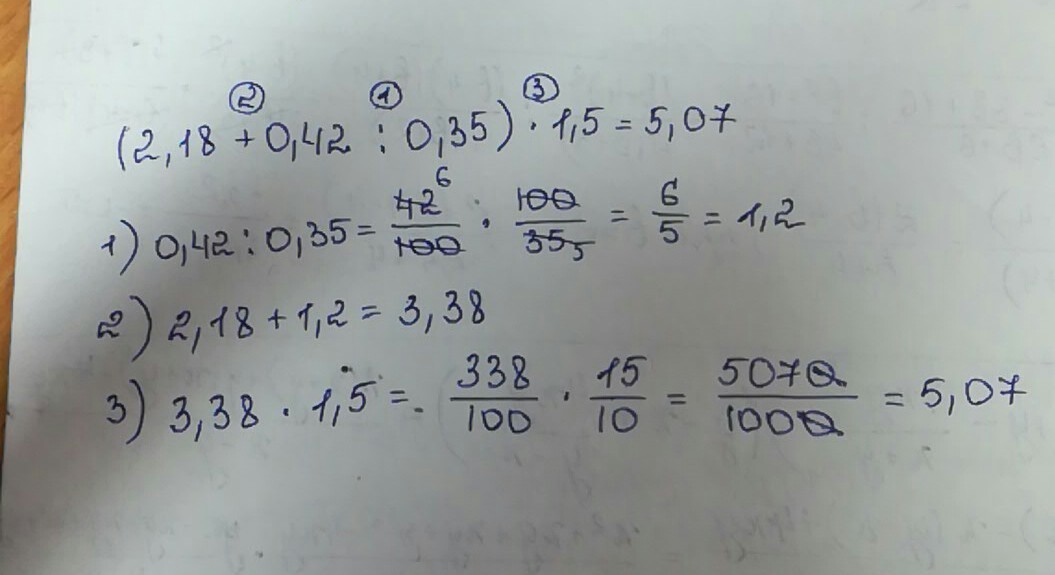 ② ① ③
(2,18 + 0,42 : 0,35) · 1,5 = 5,07
1) 0,42 : 0,35 = 42/100 · 100/35 = 6/5 = 1,2
6 5
2) 2,18 + 1,2 = 3,38
3) 3,38 · 1,5 = 338/100 · 15/10 = 5070/1000 = 5,07